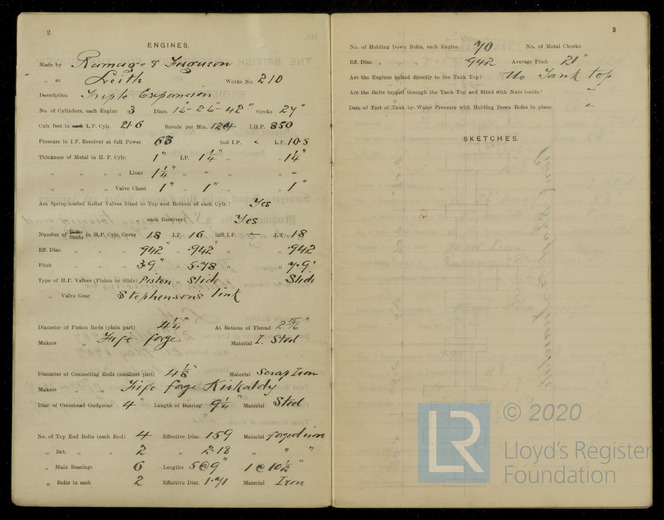 2
ENGINES.
Made by Ramage & Ferguson
" at Leith Works No. 210
Description Triple Expansion
No. of Cylinders, each Engine 3 Diars. 16-26-42" Stroke 27"
Cub. feet in each L.P. Cylr. 21·6 Revols per Min. I.H.P. 850
Pressure in I.P. Receiver at full Power 63 2nd I.P. " L.P. 10·8
Thickness of Metal in H.P. Cylr. 1" I.P. 1¼" " 1¼"
" " " Liner 1¼" - " -
" " " Valve Chest 1" " 1" " 1"
Are Spring-loaded Relief Valves fitted to Top and Bottom of each Cylr.? Yes
" " " each Receiver? Yes
Number of Bolts Studs in H.P. Cylr. Cover 18 I.P. 16 2nd I.P. - L.P. 18
Eff. Diar. " " .942 " .942 " .942
Pitch " " 3·9" " 5·78 " 7·9"
Type of H.P. Valves (Piston or Slide) Piston Slide Slide
" Valve Gear Stephensons link
Diameter of Piston Rods (plain part) 4¼" At Bottom of Thread
Makers " Fife forge Material I. Steel
Diameter of Connecting Rods (smallest part) 4⅛" Material Scrap Iron
Makers " Fife forge Kirkaldy
Diar. of Crosshead Gudgeons 4" Length of Bearing 9¼" Material Steel
No. of Top End Bolts (each Rod) 4 Effective Diar. 1·59 Material forged iron
" Bot. " " 2 " 2·18 " " "
" Main Bearings 6 Lengths 5@9" 1@10½"
" Bolts in each 2 Effective Diar. 1·71 Material Iron
3
No. of Holding Down Bolts, each Engine 70 No. of Metal Chocks
Eff. Diar. " .942 Average Pitch 21"
Are the Engines bolted directly to the Tank Top? No Tank top
Are the Bolts tapped through the Tank Top and fitted with Nuts inside? "
Date of Test of Tank by Water Pressure with Holding Down Bolts in place "
SKETCHES
© 2020
LR
Lloyd's Register
Foundation